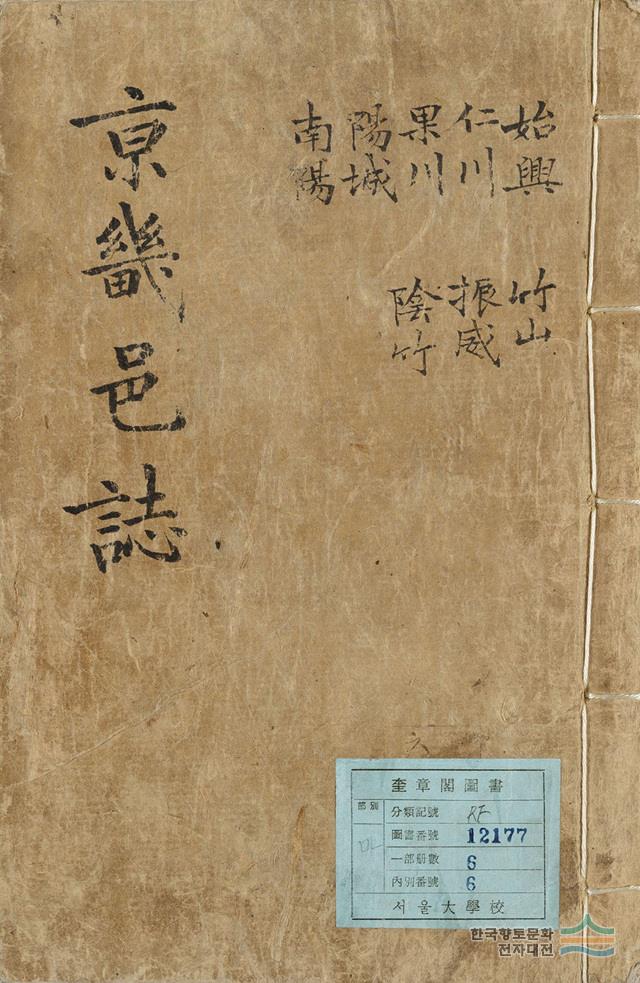 京畿邑誌
始興
仁川
果川
陽城
南陽
竹山
振威
陰竹
六
奎章閣圖書
部別
分類記號 RF
圖書番號 12177
一部冊數 6
內別番號 6
서울大學校
한국향토문화
전자대전